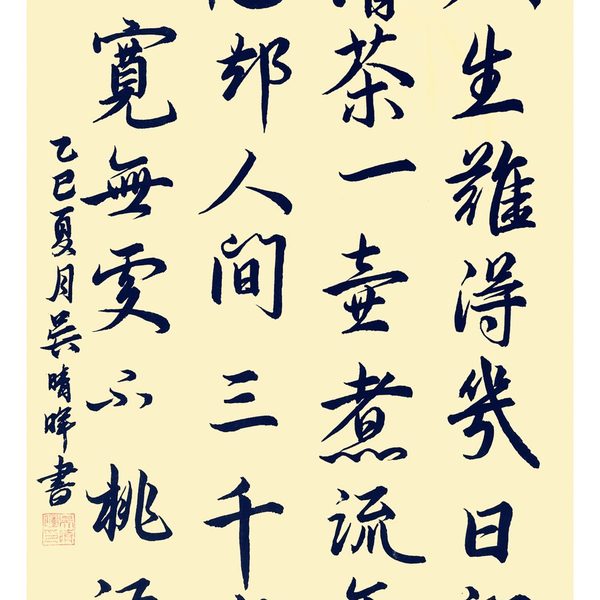 人生難得幾日
清茶一壺煮流年
却人間三千
寬無處不桃源
乙巳夏月吳晴晖書